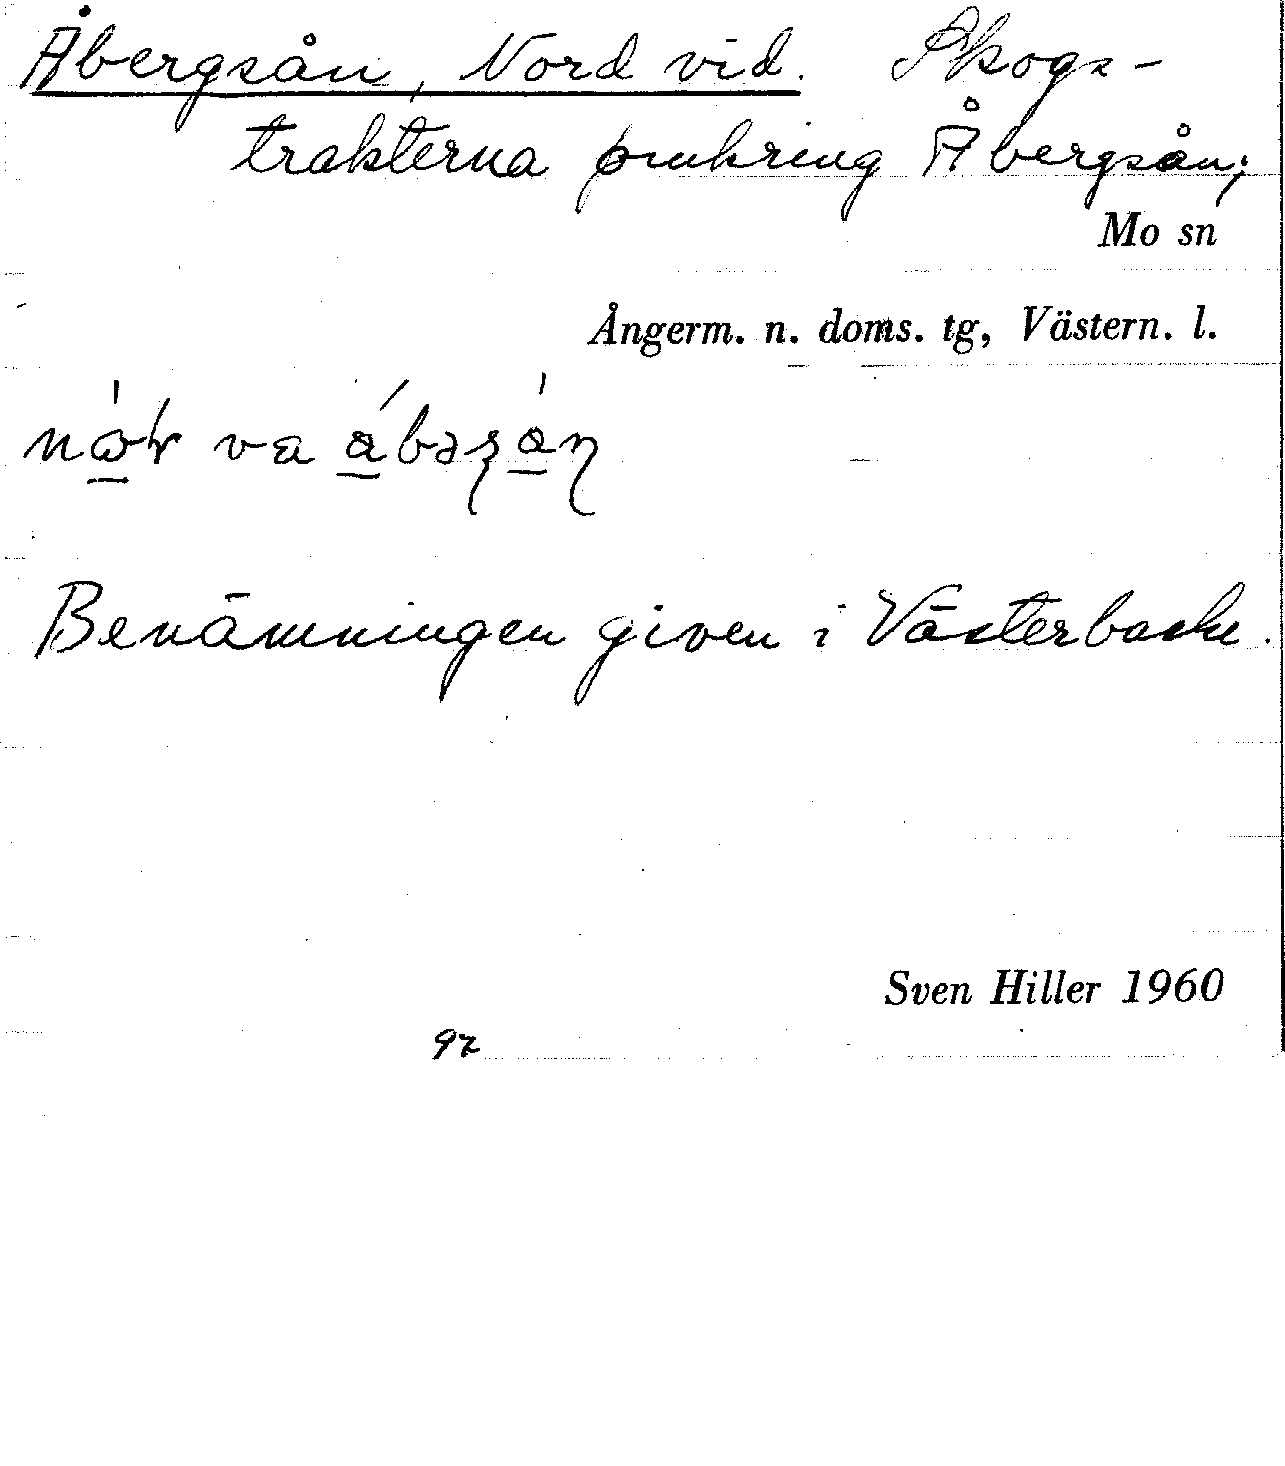 Åbergsån, Nord vid. Skogs-
trakterna omkring Åbergsån;
Mo sn
Ångerm. n. doms. tg, Västern. l.
va
Benämningen given i Västerbacke.
Sven Hiller 1960
97